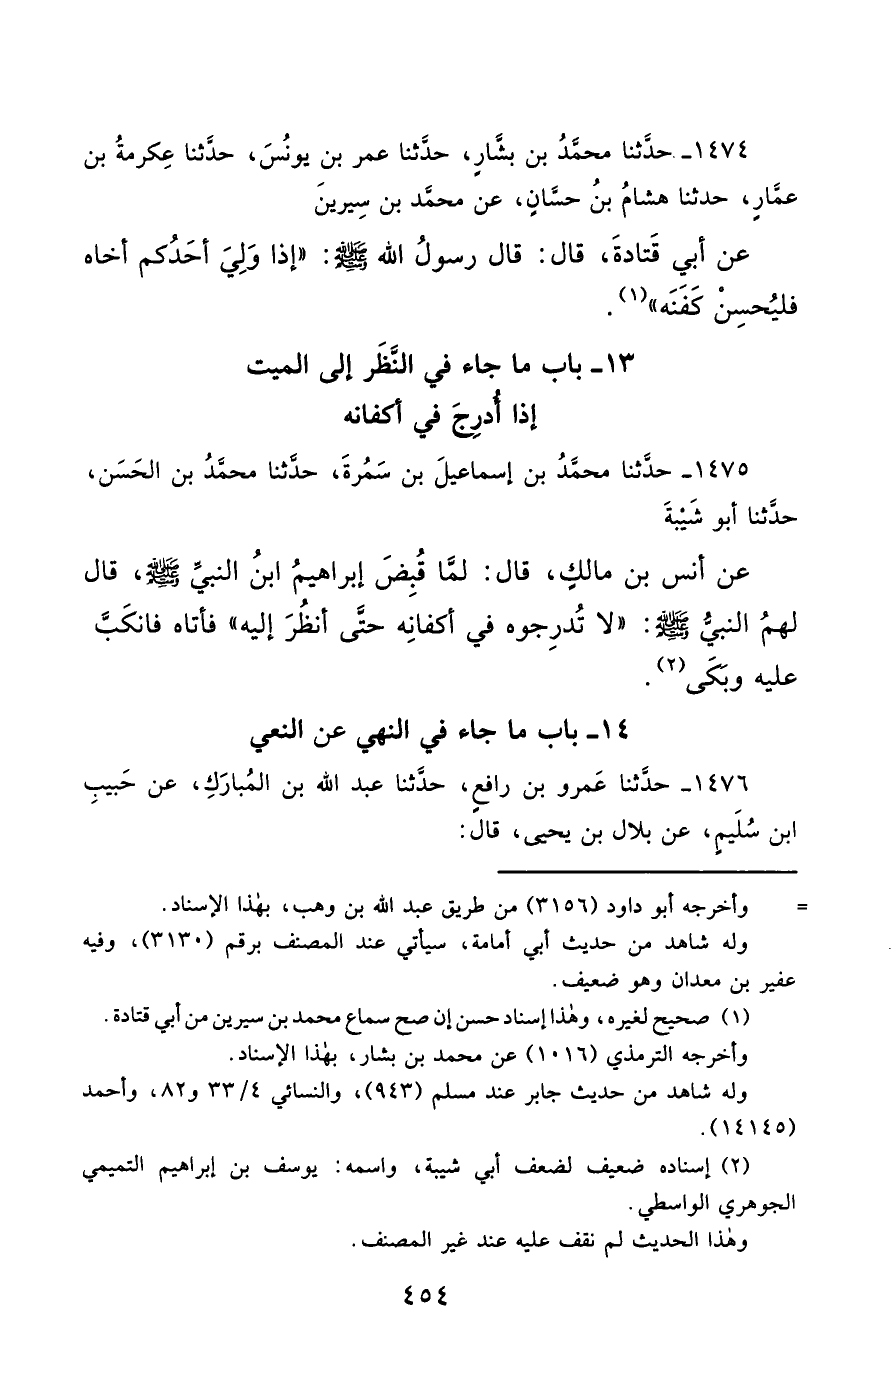 ١٤٧٤ـ حدَّثنا محمَّدُ بن بشَّارٍ، حدَّثنا عمر بن يونُسَ، حدَّثنا عِكرمةُ بن
عمَّارٍ، حدثنا هشامُ بنُ حسَّانٍ، عن محمَّد بن سِيرينَ
عن أبي قَتادةَ، قال: قال رسولُ الله ﷺ: «إذا وَلِيَ أحَدُكم أخاه
فليُحسِنْ كَفَنَه»(١).
١٣ـ باب ما جاء في النَّظَر إلى الميت
إذا أُدرِجَ في أكفانه
١٤٧٥ـ حدَّثنا محمَّدُ بن إسماعيلَ بن سَمُرةَ، حدَّثنا محمَّدُ بن الحَسَن،
حدَّثنا أبو شَيْبةَ
عن أنس بن مالكٍ، قال: لمَّا قُبِضَ إبراهيمُ ابنُ النبيِّ ﷺ، قال
لهمُ النبيُّ ﷺ: «لا تُدرِجوه في أكفانِه حتَّى أنظُرَ إليه» فأتاه فانكَبَّ
عليه وبَكَى(٢).
١٤ـ باب ما جاء في النهي عن النعي
١٤٧٦ـ حدَّثنا عَمرو بن رافعٍ، حدَّثنا عبد الله بن المُبارَكِ، عن حَبيبِ
ابن سُلَيمٍ، عن بلال بن يحيى، قال:
= وأخرجه أبو داود (٣١٥٦) من طريق عبد الله بن وهب، بهٰذا الإسناد.
وله شاهد من حديث أبي أمامة، سيأتي عند المصنف برقم (٣١٣٠)، وفيه
عفير بن معدان وهو ضعيف.
(١) صحيح لغيره، وهٰذا إسناد حسن إن صح سماع محمد بن سيرين من أبي قتادة.
وأخرجه الترمذي (١٠١٦) عن محمد بن بشار، بهٰذا الإسناد.
وله شاهد من حديث جابر عند مسلم (٩٤٣)، والنسائي ٤/ ٣٣ و٨٢، وأحمد
(١٤١٤٥).
(٢) إسناده ضعيف لضعف أبي شيبة، واسمه: يوسف بن إبراهيم التميمي
الجوهري الواسطي.
وهٰذا الحديث لم نقف عليه عند غير المصنف.
٤٥٤